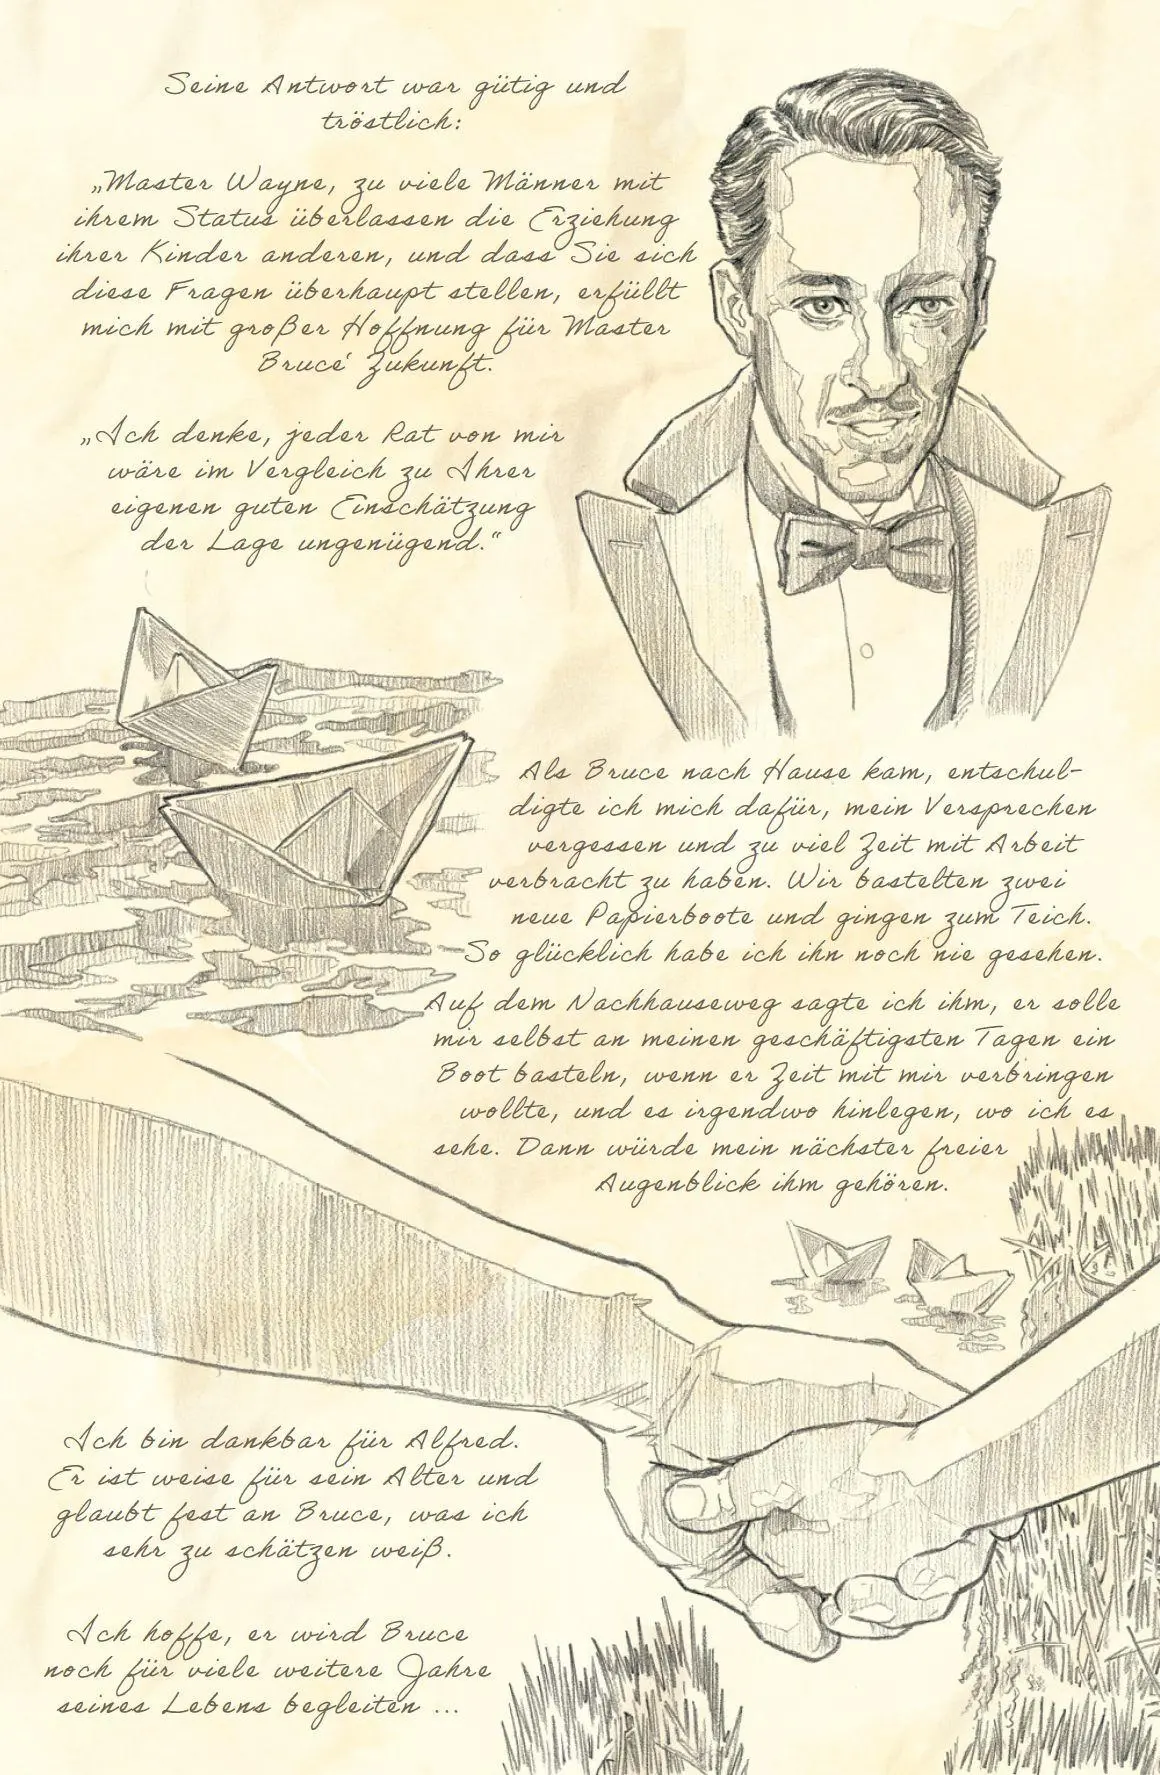 Seine Antwort war gütig und
tröstlich:
„Master Wayne, zu viele Männer mit
ihrem Status überlassen die Erziehung
ihrer Kinder anderen, und dass Sie sich
diese Fragen überhaupt stellen, erfüllt
mich mit großer Hoffnung für Master
Bruce' Zukunft.
„Ich denke, jeder Rat von mir
wäre im Vergleich zu Ihrer
eigenen guten Einschätzung
der Lage ungenügend.“
Als Bruce nach Hause kam, entschul-
digte ich mich dafür, mein Versprechen
vergessen und zu viel Zeit mit Arbeit
verbracht zu haben. Wir bastelten zwei
neue Papierboote und gingen zum Teich.
So glücklich habe ich ihn noch nie gesehen.
Auf dem Nachhauseweg sagte ich ihm, er solle
mir selbst an meinen geschäftigsten Tagen ein
Boot basteln, wenn er Zeit mit mir verbringen
wollte, und es irgendwo hinlegen, wo ich es
sehe. Dann würde mein nächster freier
Augenblick ihm gehören.
Ich bin dankbar für Alfred.
Er ist weise für sein Alter und
glaubt fest an Bruce, was ich
sehr zu schätzen weiß.
Ich hoffe, er wird Bruce
noch für viele weitere Jahre
seines Lebens begleiten ...